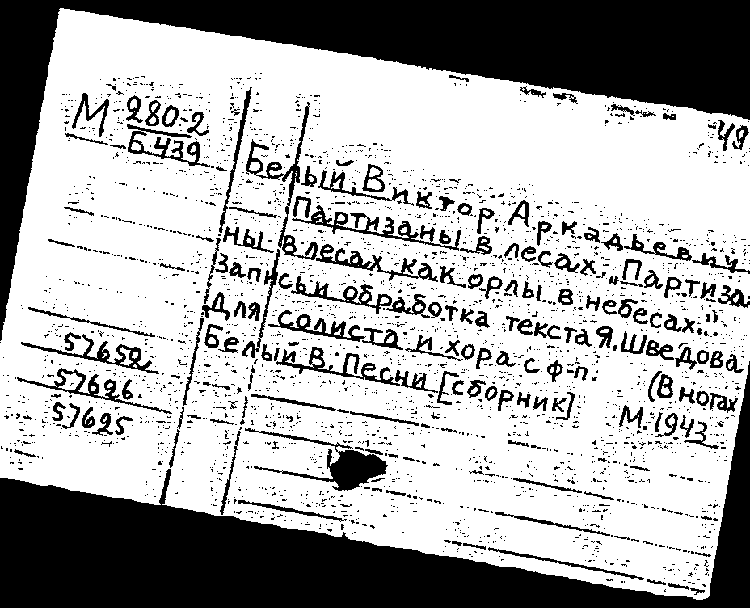 М 280-2
Б 439
49
Белый, Виктор Аркадьевич
Партизаны в лесах. „Партиза
ны в лесах, как орлы в небесах..."
Запись и обработка текста Я. Шведова
Для солиста и хора с ф-п. (В нотах
Белый, В. Песни [сборник] М. 1943
57652
57626.
57625